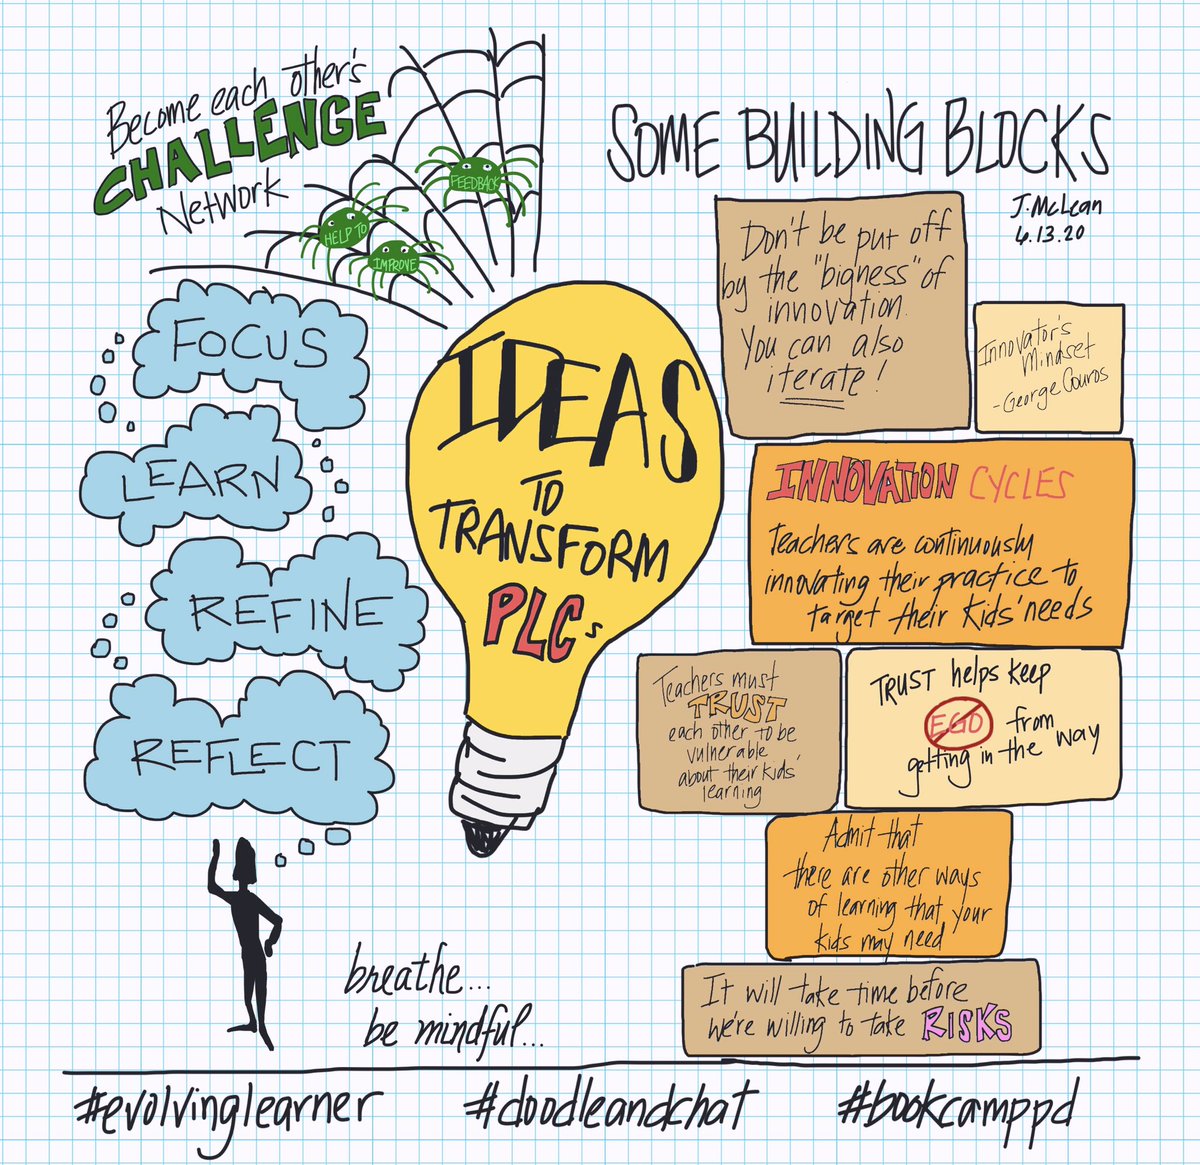 Become each other's
CHALLENGE
Network
FEEDBACK
HELP TO
IMPROVE
FOCUS
LEARN
REFINE
REFLECT
IDEAS
TO
TRANSFORM
PLCs
SOME BUILDING BLOCKS
J. McLean
6.13.20
Don't be put off
by the "bigness" of
innovation.
You can also
iterate!
Innovator's
Mindset
- George Couros
INNOVATION CYCLES
Teachers are continuously
innovating their practice to
target their kids' needs
Teachers must
TRUST
each other to be
vulnerable
about their kids'
learning
TRUST helps keep
EGO from
getting in the way
Admit that
there are other ways
of learning that your
kids may need
It will take time before
we're willing to take RISKS
breathe...
be mindful...
#evolvinglearner #doodleandchat #bookcamppd